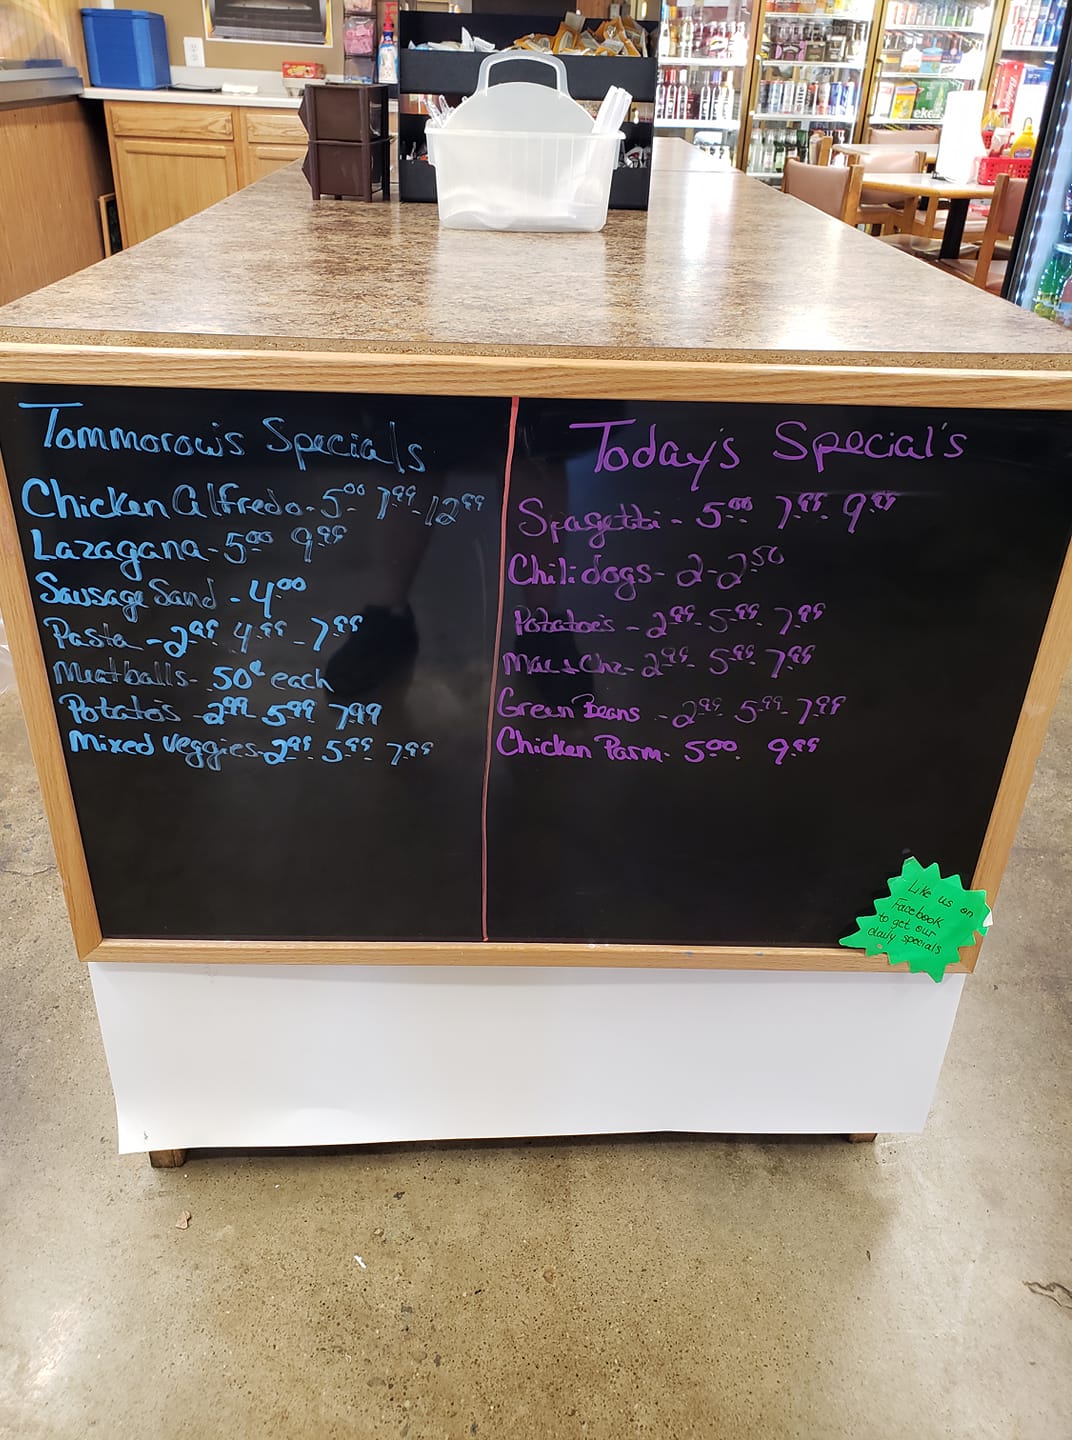 Tommorow's Specials
Chicken Alfredo - 5.00 7.99 - 12.99
Lazagana - 5.00 9.99
Sausage Sand - 4.00
Pasta - 2.99 4.99 - 7.99
Meatballs - 50¢ each
Potato's - 2.99 5.99 7.99
Mixed Veggies - 2.99 5.99 7.99
Today's Special's
Spagetti - 5.00 7.99 9.99
Chili dogs - 2 - 2.50
Potatoe's - 2.99 - 5.99 7.99
Mac & Chz - 2.99 5.99 7.99
Green Beans - 2.99 5.99 - 7.99
Chicken Parm - 5.00 9.99
Like us on
Facebook
to get our
daily specials